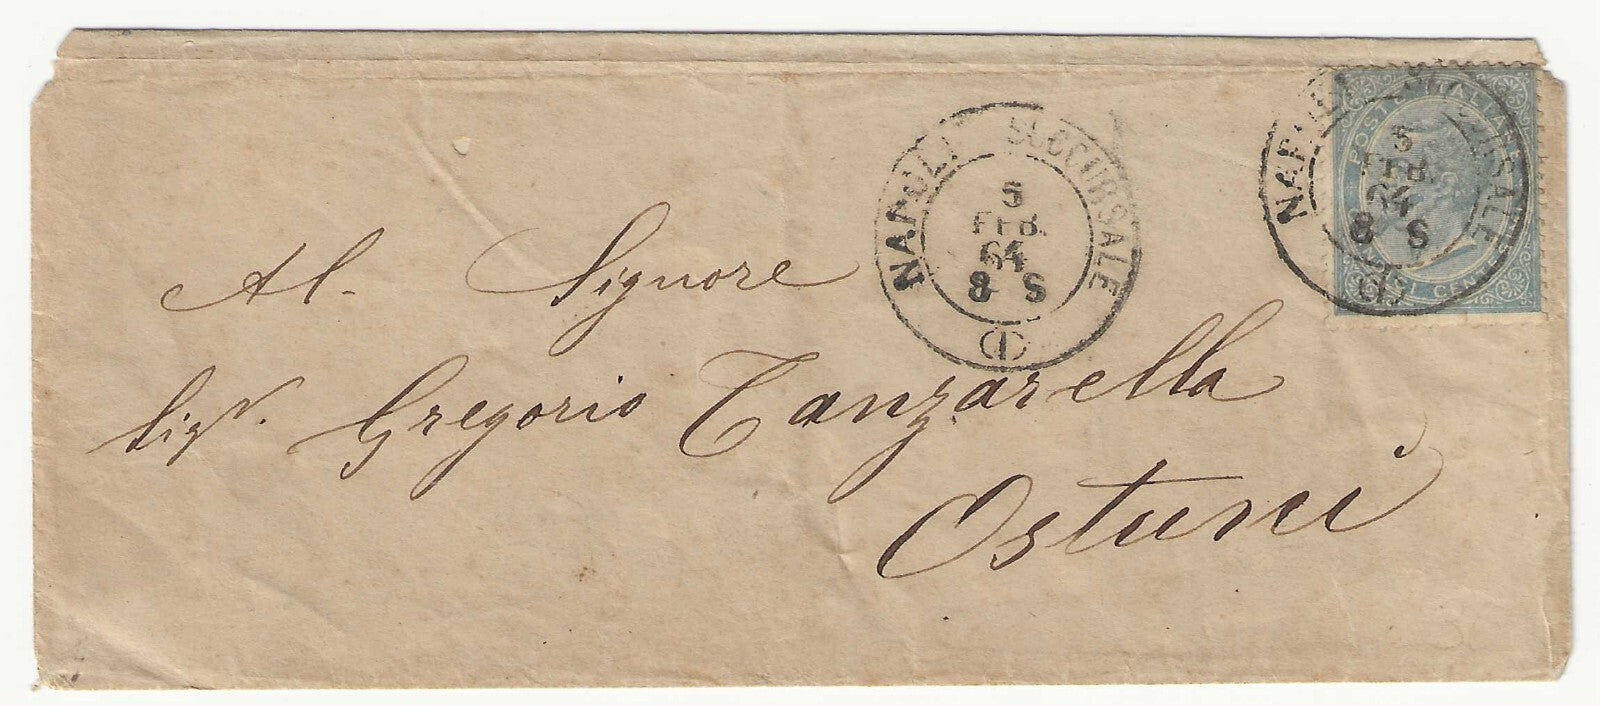 NAPOLI SUCCURSALE
5
FEB.
64
8 S
(1)
NAPOLI SUCCURSALE
5
FEB.
64
8 S
(1)
POSTE ITALIANE
CENT
Al. Signore
Sigr. Gregorio Tanzarella
Ostuni